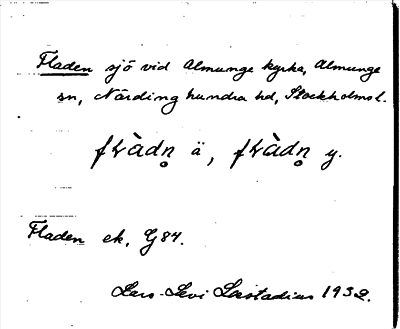 Fladen sjö vid Almunge kyrka, Almunge
sn, Närdinghundra hd, Stockholms l.
fɫàdn̥ ä, fɫàdn̥ y.
Fladen ek. G84.
Lars-Levi Læstadius 1932.